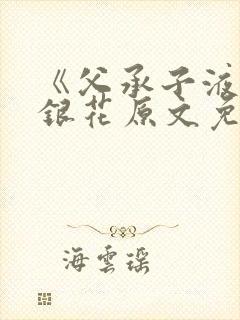 《父承子液
銀花原文免
海雲瑶